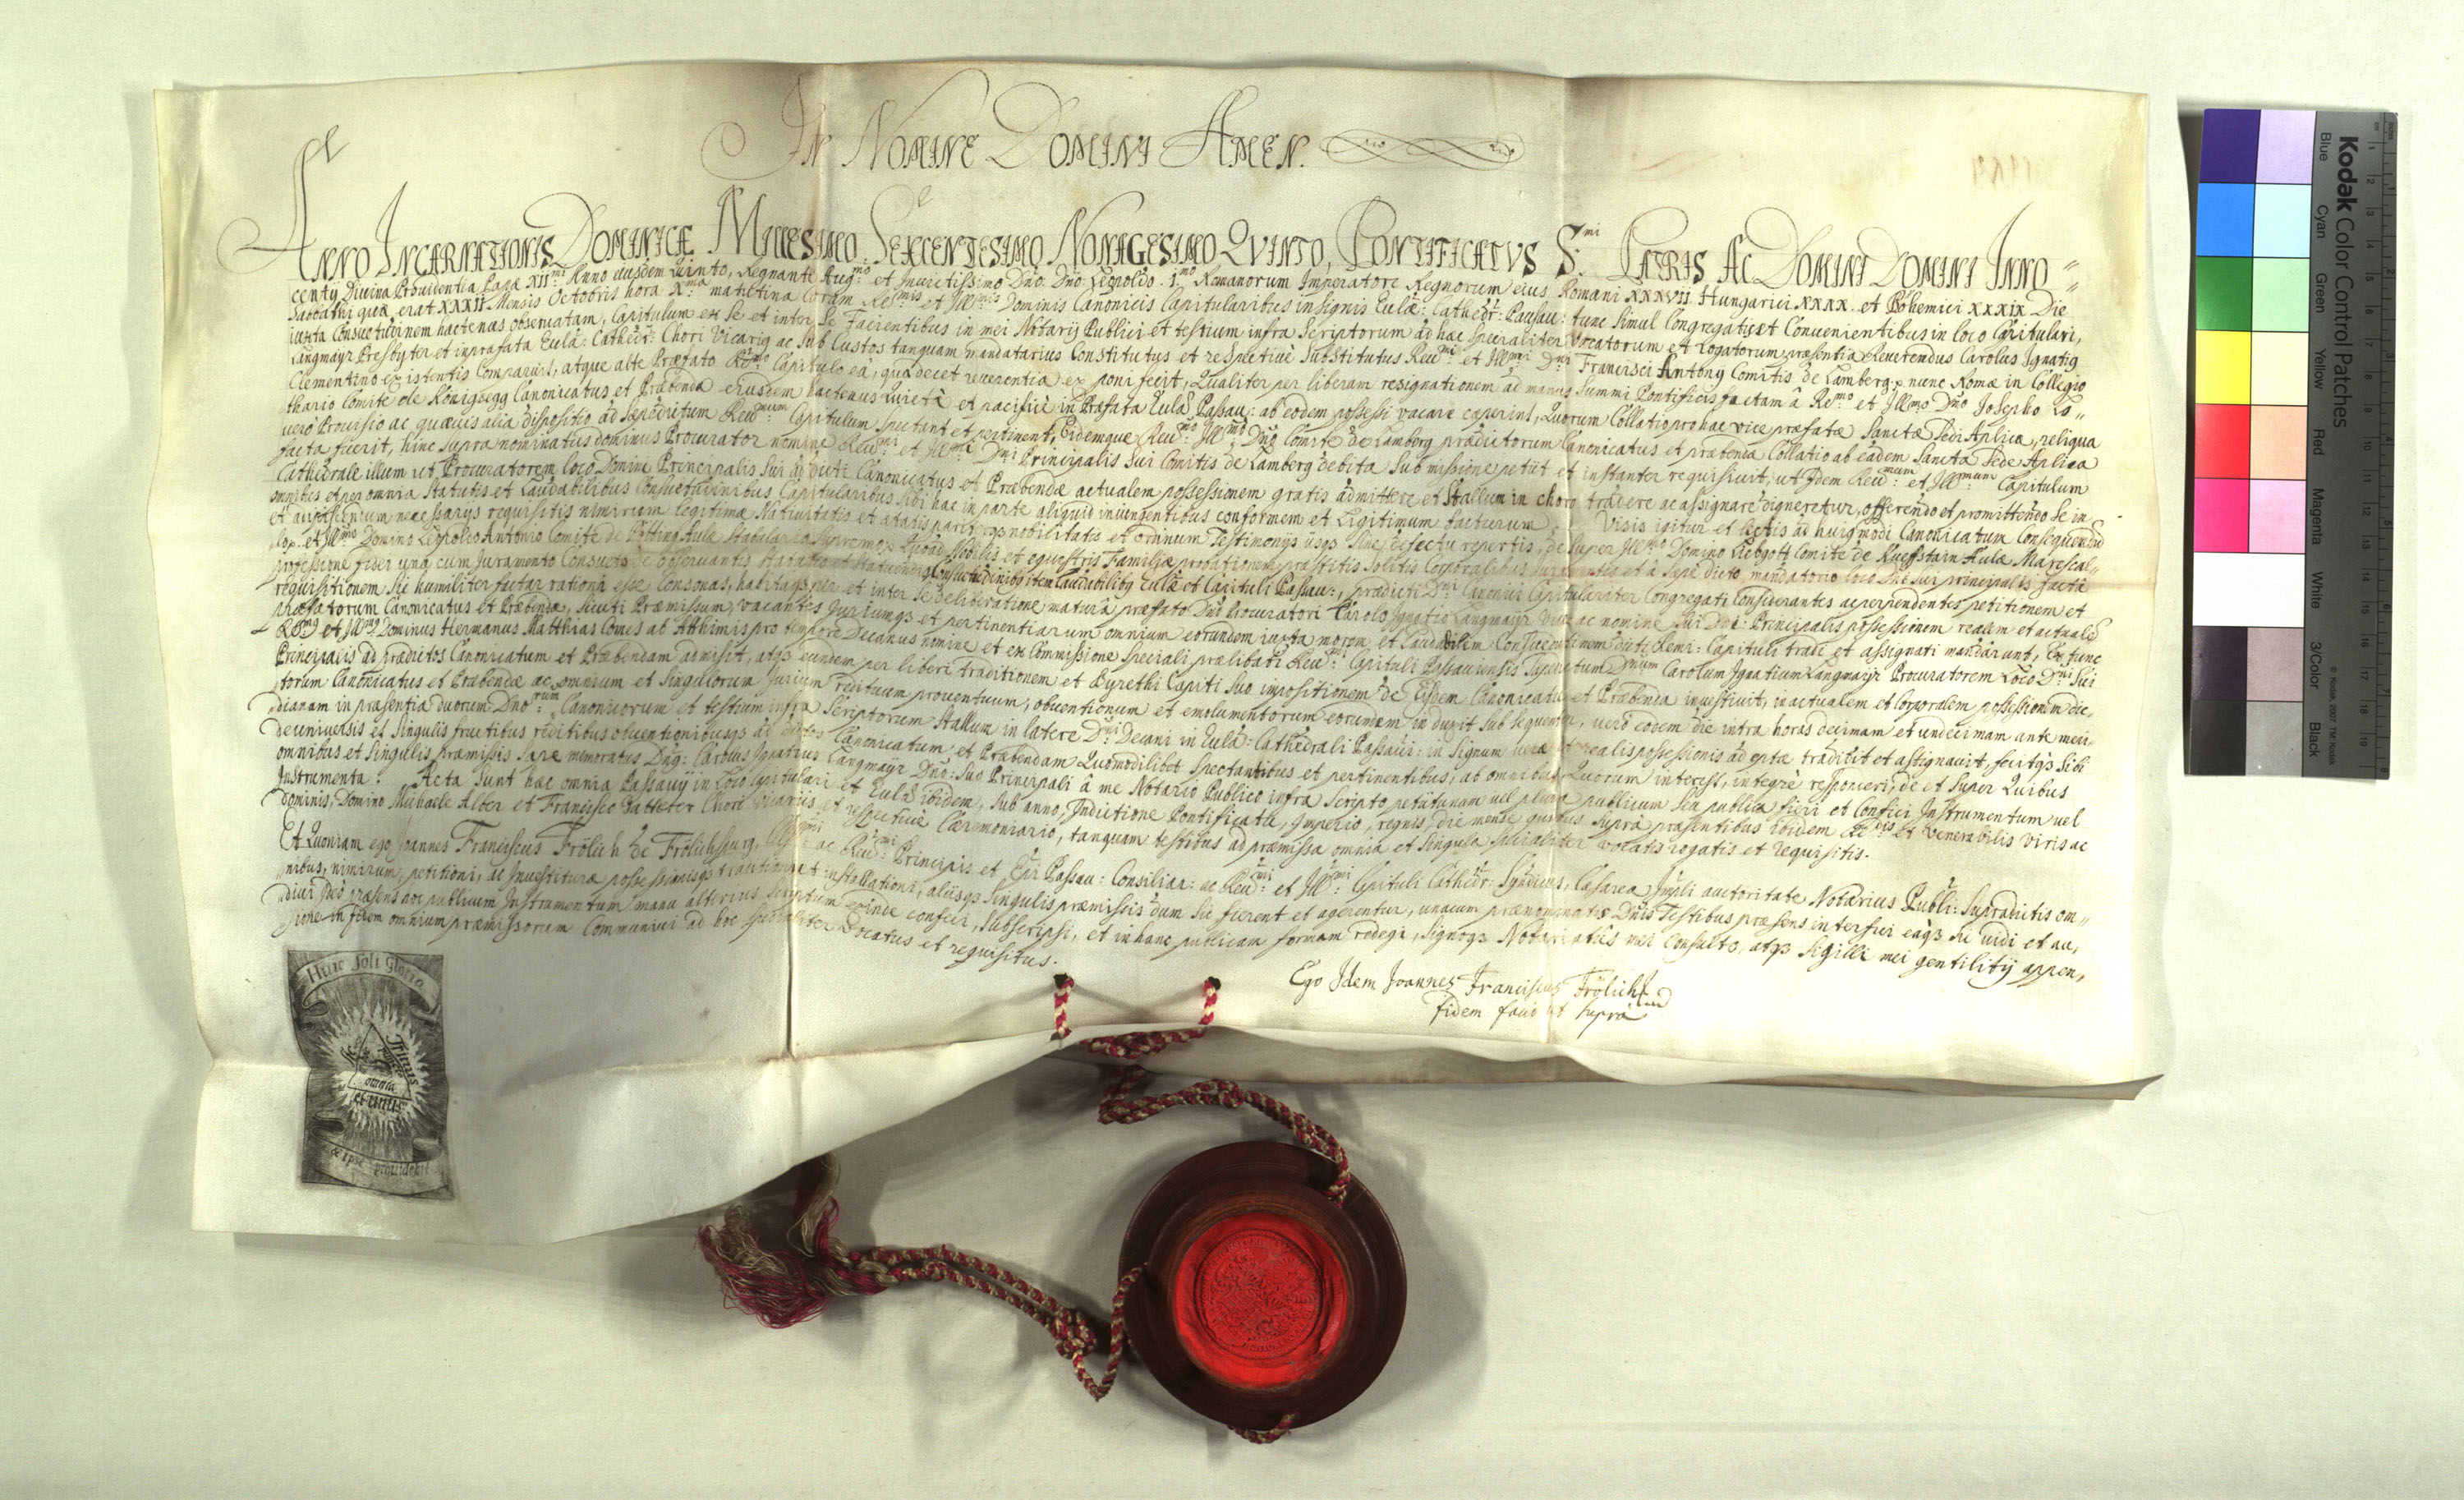 In Nomine Domini Amen.
Anno Incarnationis Dominicæ Millesimo Sexcentesimo Nonagesimo Qvinto, Pontificatvs S:mi Patris Ac Domini Domini Inno=
centy Divina Providentia Papa XII:mi Anno eiusdem Quinto, Regnante Aug:mo et Invictissimo Dño: Dño: Leopoldo I:mo Romanorum Imperatore Regnorum eius Romani XXXVII. Hungarici XXXX. et Bohemici XXXIX Die
Sabbathi quæ erat XXXII Mensis Octobris hora X:ma matutina Coram Re:mis et Ill:mis Dominis Canonicis Capitularibus insignis Eulæ: Cathedr: Passau: tunc simul Congregatis et Convenientibus in loco Capitulari,
iuxta Consuetudinem hactenus observatam, Capitulum ex se et inter se Facientibus in mei Notarij Publici et testium infra Scriptorum ad hæc specialiter vocatorum et Rogatorum præsentia Reverendus Carolus Ignatiq
Langmayr Presbyter et in præfata Eulâ: Cathedr: Chori Vicariq ac Sub Custos tanquam mandatarius Constitutus et respective Substitutus Reu:mi et Ill:mi Dni Francisci Antony Comitis de Lamberg p: nunc Romæ in Collegio
Clementino existentis Comparuit, atque alte Præfato R:mo Capitulo ea, qua decet reverentia exponi fecit, Qualiter per liberam resignationem ad manus Summi Pontificis factam â Re:mo et Ill:mo Dño Josepho Lo=
thario Comite de Königsegg Canonicatus et Præbenda eiusdem hactenus quietè et pacificè in Præfata Eulâ Passau: ab eodem possessi vacare cæperint, Quorum Collatio pro hac vice præfatæ Sanctæ Sedi Aplica, reliqua
vero Provisio ac quævis alia dispositio ad sepedictum Reu:mum Capitulum spectant et pertinent, Eidemque Reu:mo Ill:mo Dño Comite de Lamberg prædictorum Canonicatus et præbendæ Collatio ab eâdem Sancta Sede Aplica
facta fuerit, hinc supra nominatus dominus Procurator nomine Reu:mi et Ill:mi Dni Principalis sui Comitis de Lamberg debita submissione petiit et instanter requisivit, ut Idem Reu:mum et Ill:mum Capitulum
Cathedrale illum ut Procuratorem loco Domini Principalis Sui ad dicti Canonicatus et Præbendæ actualem possessionem gratis admittere et Stallum in choro tradere ac assignare dignaretur, offerendo et promittendo se in
omnibus et per omnia Statutis et Laudabilibus Consuetudinibus Capitularibus sibi hac in parte aliquid iniungentibus conformem et Legitimum facturum. Visis igitur et lectis ad huiqmodi Canonicatum Consequendũ
et adipiscendum necessarys requisitis nimirum legitimæ Nativitatis et ætatis pariterqs nobilitatis et ordinum Testimonijs ijsqs sine defectu repertis, de super Ill:mo Domino Liebgott Comite de Kueffstain Aulæ Marescal=
lo p. et Ill:mo Domino Leopoldo Antonio Comite de Pötting Aulæ Stabulario Supremo p. Quoad Nobilis et equestris Familiæ probationem præstitis solitis Corporalibus iuramentis et à sepe dicto mandatario loco Dni sui principalis facta
professione fidei una cum Juramento Consueto de observantis Statutis et Consuetudinibq item Laudabilibq Eulæ et Capituli Passau:, prædicti D:ni Canonici Capitulariter Congregati Considerantes ac perpendentes petitionem et
requisitionem sic humiliter factas rationi esse consonas, habitaqs per et inter se deliberatione matura præfato Dño Procuratori Carolo Ignatio Langmayr vice ac nomine sui Dni: Principalis possessionem realem et actualẽ
præfatorum Canonicatus et Præbendæ, sicuti Præmissum, vacantes Juriumqs et pertinentiarum omnium eorundem iuxta morem et Laudabilem Consuetudinem dicti Remi: Capituli tradi et assignari mandarunt, Ex tunc
R:mq et Ill:mq Dominus Hermanus Matthias Comes ab Atthimis pro tempore Decanus nomine et ex Commissione speciali prælibati Reu:mi Capituli Passaviensis sepedictum Dnum Carolum Ignatium Langmayr Procuratorem Loco D:ni Sui
Principalis ad prædictos Canonicatum et Præbendam admisit, atqs eundem per libri traditionem et Byrethi Capiti Suo impositionem de Eisdem Canonicatu et Præbenda investivit, in actualem et Corporalem possessionem dic=
torum Canonicatus et Præbendæ ac omnium et singulorum Jurium redituum proventuum, obventionum et emolumentorum eorundem induxit subsequenter, uerò eodem die intra horas decimam et undecimam ante meri=
dianam in præsentia duorum Dno:rum Canonicorum et testium infra Scriptorum Stallum in latere D:ni Decani in Eulâ: Cathedrali Passavi: in signum veræ et realis possessionis adeptæ tradidit et assignavit, fecitqs sibi
de universis et singulis fructibus reditibus obventionibusqs ad dictos Canonicatum et Præbendam Quomodolibet spectantibus et pertinentibus, ab omnibus, Quorum interest, integrè responderi, de et super Quibus
omnibus et singulis præmissis sæpe memoratus Dñq: Carolus Ignatius Langmayr Dño: Suo Principali â me Notario Publico infra scripto petiit unam vel plura publicum seu publica fieri et confici Instrumentum uel
Instrumenta. Acta sunt hæc omnia Passavij in Loco Capitulari et Eulâ ibidem, sub anno, Indictione Pontificatu, Imperio, regnis, die mense quibus suprà præsentibus ibidem Re:dis et Venerabilis viris ac
dominis, Domino Michaele Alber et Francisco Gatteter Chori Vicariis et respective Cæremoniario, tanquam testibus ad præmissa omnia et singula specialiter vocatis rogatis et requisitis.
Et Quoniam ego Joannes Franciscus Frölich de Frölichsburg, Celsi:mi ac Reu:mi Principis et Epi Passau: Consiliar: ac Reu:mi et Ill:mi Capituli Cathedr: Syndicus, Cæsarea Impli auctoritate Notarius Publi: Supradictis om=
nibus, nimirum, petitioni, ac Investituræ possessionisqs traditioni et installationi, alijsqs singulis præmissis dum sic fierent et agerentur, unacum prænominatis Dnis Testibus præsens interfui eaqs sic uidi et au=
divi, ideò præsens hoc publicum Instrumentum manu alterius scriptum exinde confeci, subscripsi, et in hanc publicam formam redegi, signoqs Notariatûs mei consueto, atqs Sigilli mei gentilitij appen=
sione in fidem omnium præmissorum Communivi ad hoc specialiter vocatus et requisitus.
Ego Idem Joannes Franciscus Frölich
fidem facio ut supra
Huic Soli Gloria
omnia
et unus
& ipse providebit
Kodak Color Control Patches
Blue Cyan Green Yellow Red Magenta White 3/Color Black
© Kodak, 2007 TM: Kodak